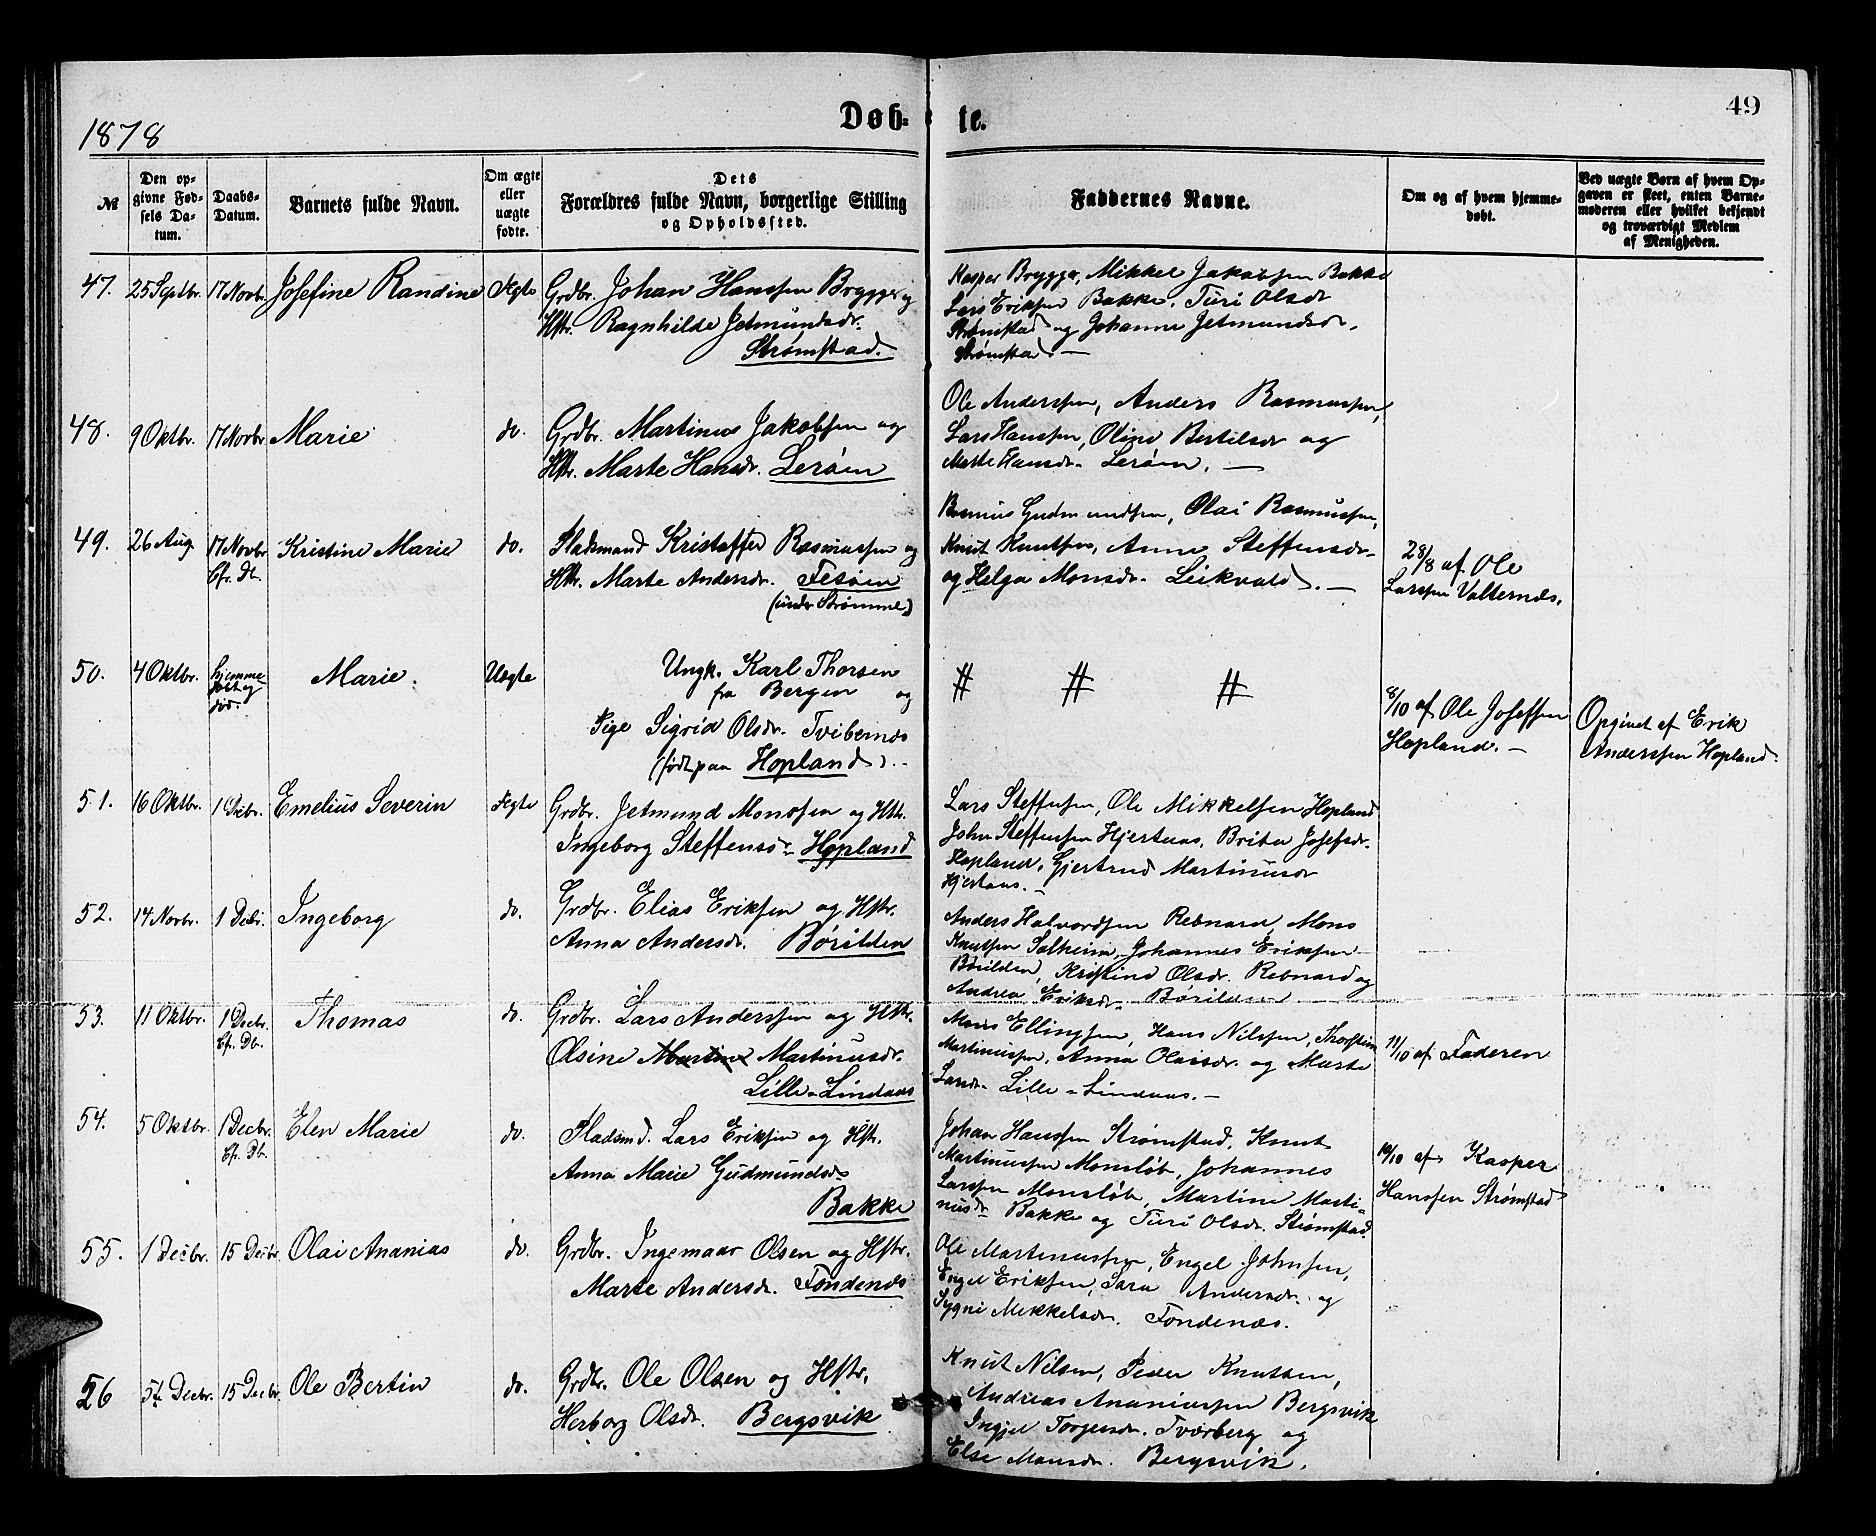 1878
Døb-
te.
49
№
Den op-
givne Fød-
sels Da-
tum.
Daabs-
Datum.
Barnets fulde Navn.
Om ægte
eller
uægte
fødte.
Dets
Forældres fulde Navn, borgerlige Stilling
og Opholdssted.
Faddernes Navne.
Om og af hvem hjemme-
døbt.
Ved uægte Børn af hvem Op-
gaven er skeet, enten Barne-
moderen eller hvilket bekjendt
og troværdigt Medlem
af Menigheden.
47. 25 Septbr. 17 Novbr. Josefine Randine Ægte
Grdbr. Johan Hanssen Brygge og
Hstr. Ragnhilde Jetmundsdr.
Strømstad.
Kasper Brygge, Mikkel Jakobsen Bakke
Lars Eriksen Bakke, Turi Olsdr
Strømstad og Johanne Jetmundsdr.
Strømstad. —
48. 9 Oktbr. 17 Novbr. Marie do.
Grdbr. Martinus Jakobsen og
Hstr. Marte Hansdr. Lerøen
Ole Anderssen, Anders Rasmussen,
Lars Hanssen, Oline Bertilsdr og
Marte Hansdr. Lerøen. —
49. 26 Aug. 17 Novbr Kristine Marie do.
Pladsmand Kristoffer Rasmussen og
Hstr. Marte Andersdr. Fesøen
(under Strømme)
Rasmus Gudmundsen, Olai Rasmussen,
Knut Knutsen, Anne Steffensdr.
og Helga Monsdr. Leikvold. —
28/8 af Ole
Larssen Valternæs.
50. 4 Oktbr. hjemme
døbt og
død. Marie. Uægte
Ungk. Karl Thorsen
fra Bergen og
Pige Sigrid Olsdr. Tvibernæs
(født paa Hopland). —
# # #
8/10 af Ole Josefsen
Hopland. —
Opgivet af Erik
Anderssen Hopland.
51. 16 Oktbr. 1 Decbr. Emelius Severin Ægte
Grdbr. Jetmund Monssen og Hstr.
Ingeborg Steffensdr. Hopland
Lars Steffensen, Ole Mikkelsen Hopland
John Steffensen Hjertaas, Brita Josefsdr.
Hopland, Gjertrud Martinusdr
Hjertaas. —
52. 14 Novbr. 1 Decbr. Ingeborg do.
Grdbr. Elias Eriksen og Hstr.
Anna Andersdr. Børilden
Anders Halvordsen Rebnord, Mons
Knutsen Solheim, Johannes Eriksen
Børilden, Kristine Olsdr. Rebnord og
Andrea Eriksdr. Børilden
53. 11 Oktbr. 1 Decbr. Thomas do.
Grdbr. Lars Anderssen og Hstr.
Olsine Martine Martinusdr.
Lille-Lindaas
Mons Ellingsen, Hans Nilssen, Thorstein
Martinussen, Anna Olaisdr. og Marte
Larsdr. Lille-Lindaas. —
11/10 af Faderen
54. 5 Oktbr. 1 Decbr. Elen Marie do.
Pladsmd. Lars Eriksen og Hstr.
Anna Marie Gudmundsdr
Bakke
Johan Hanssen Strømstad, Knut
Martinussen Monsløb, Johannes
Larssen Monsløb, Martine Marti-
nusdr Bakke og Turi Olsdr. Strømstad.
19/10 af Kasper
Hanssen Strømstad
55. 1 Decbr. 15 Decbr Olai Ananias do.
Grdbr. Ingemaar Olsen og Hstr.
Marte Andersdr. Fondenæs
Ole Martinussen, Engel Johnsen,
Engel Eriksen, Sara Andersdr. og
Sygni Mikkelsdr. Fondenæs.
56 5t Decbr. 15 Decbr Ole Bertin do.
Grdbr. Ole Olsen og Hstr.
Herborg Olsdr. Bergsvik
Knut Nilsen, Peder Knutsen,
Andreas Ananiassen Bergsvik
Ingjel Torgersdr. Tværberg og
Else Monsdr. Bergsvik.